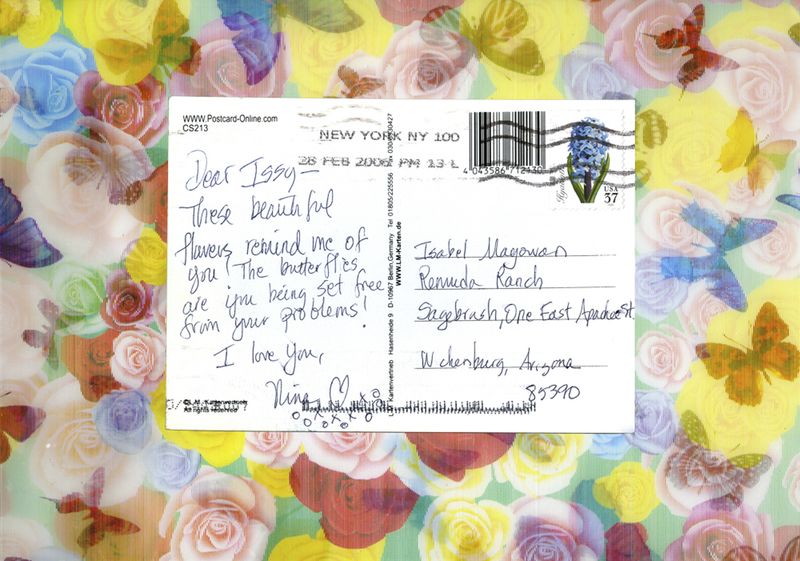 WWW.Postcard-Online.com
CS213
NEW YORK NY 100
28 FEB 2006 PM 13 L
4 043586 712130
USA
37
Dear Issy—
These beautiful
flowers remind me of
you! The butterflies
are you being set free
from your problems!
I love you,
Nina
Isabel Magowan
Remuda Ranch
Sagebrush, One East Apache St.
Wickenburg, Arizona
85390
Kartenvertrieb Hasenheide 9 D-10967 Berlin Germany Tel 01805/225556 Fax
WWW.LM-Karten.de
All rights reserved